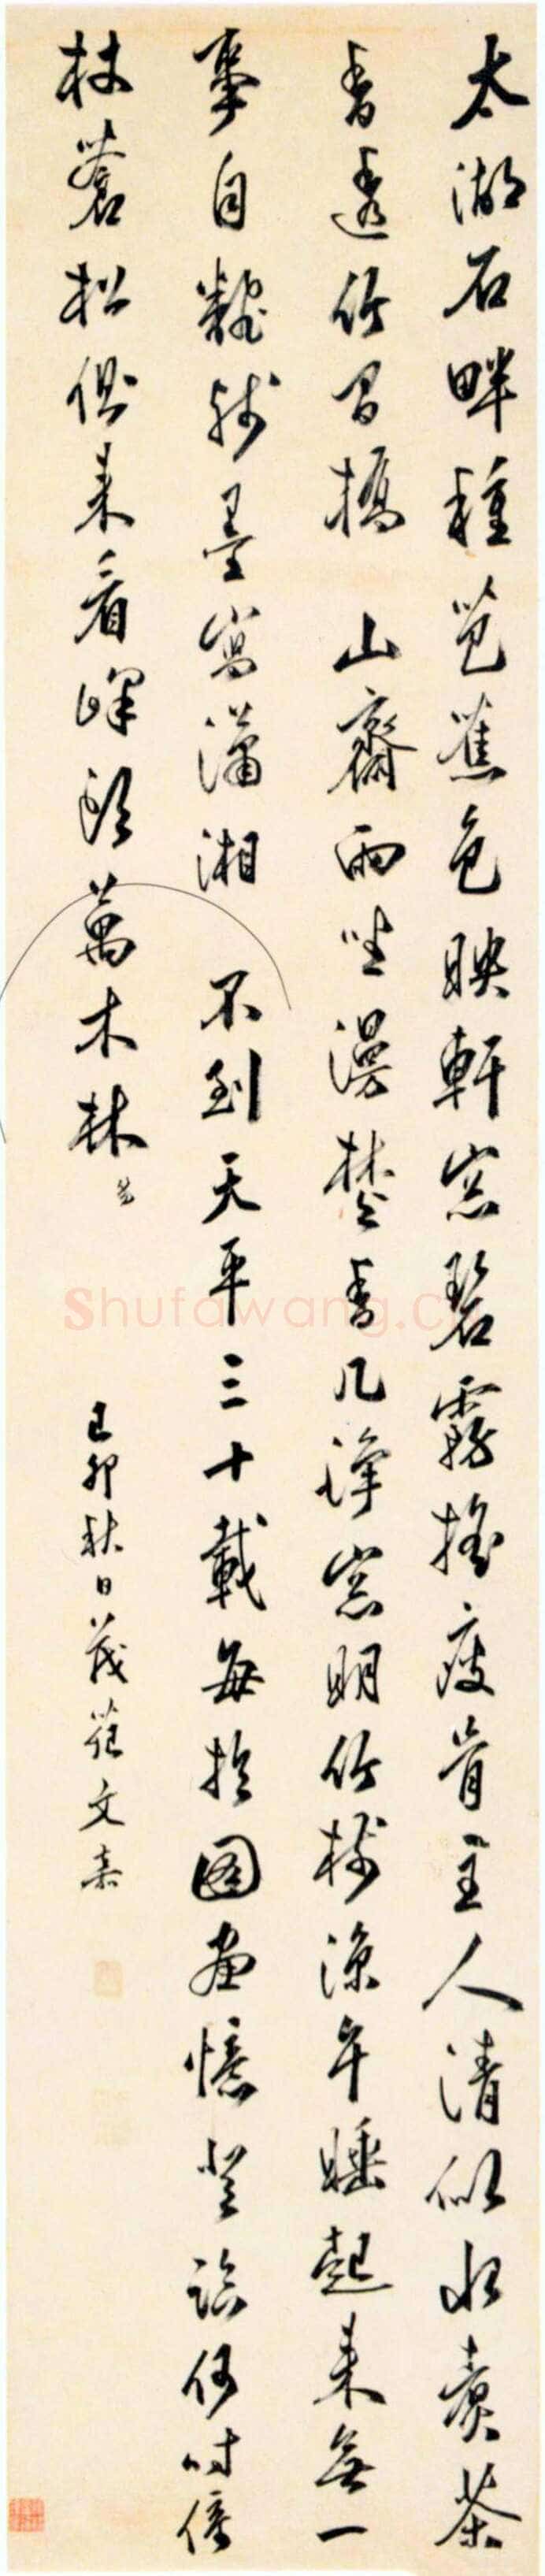 太湖石畔種芭蕉色映軒窓碧霧搖瘦骨主人清似水煑茶
香透竹間橋 山齋雨坐漫焚香几淨窓明竹樹涼午睡起來無一
事自黏殘墨寫瀟湘 不到天平三十載每於圖畫憶登臨何時倚
杖蒼松側來看峰頭萬木林
己卯秋日茂苑文嘉
Shufawang.c